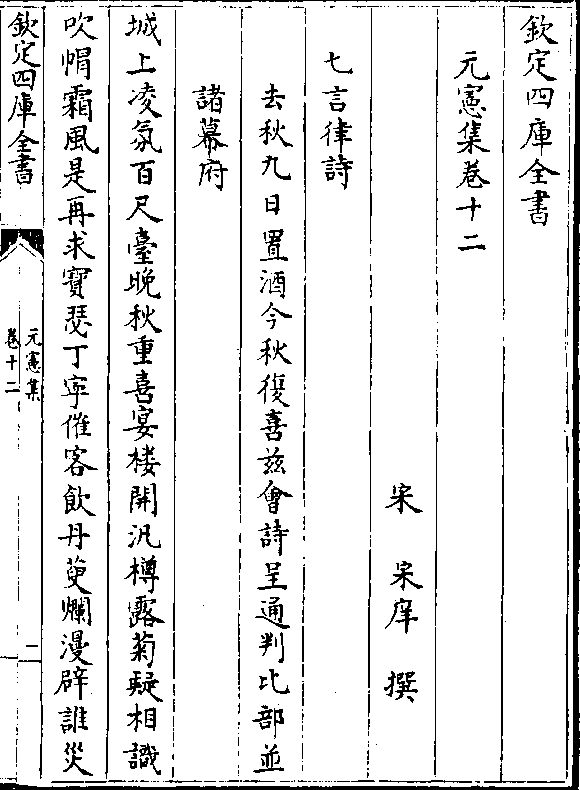 欽定四庫全書
元憲集卷十二
宋　宋庠　撰
七言律詩
去秋九日置酒今秋復喜兹會詩呈通判比部並
諸幕府
城上凌氛百尺臺晚秋重喜宴樓開汎樽露菊疑相識
吹帽霜風是再求寶瑟丁寕催客飲丹萸爛漫辟誰災
欽定四庫全書
元憲集
卷十二
一